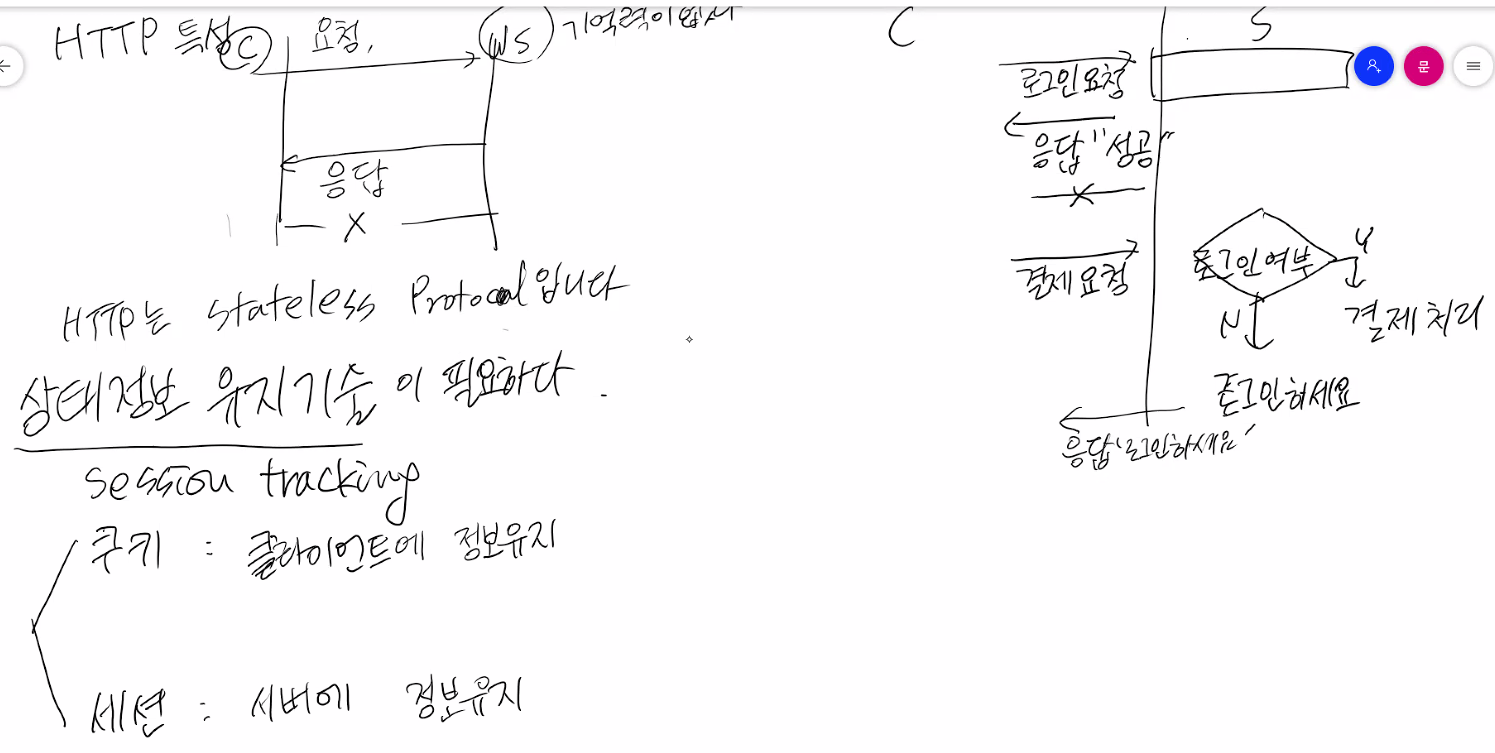 HTTP 특성
C
요청,
WS
기억력이 없
응답
X
HTTP는 stateless Protocol입니다
상태정보 유지기술이 필요하다.
session tracking
쿠키 : 클라이언트에 정보유지
세션 : 서버에 정보유지
C
S
문
로그인요청
응답 "성공"
X
결제요청
로그인여부
Y
결제처리
N
로그인하세요
응답 '로그인하세요'